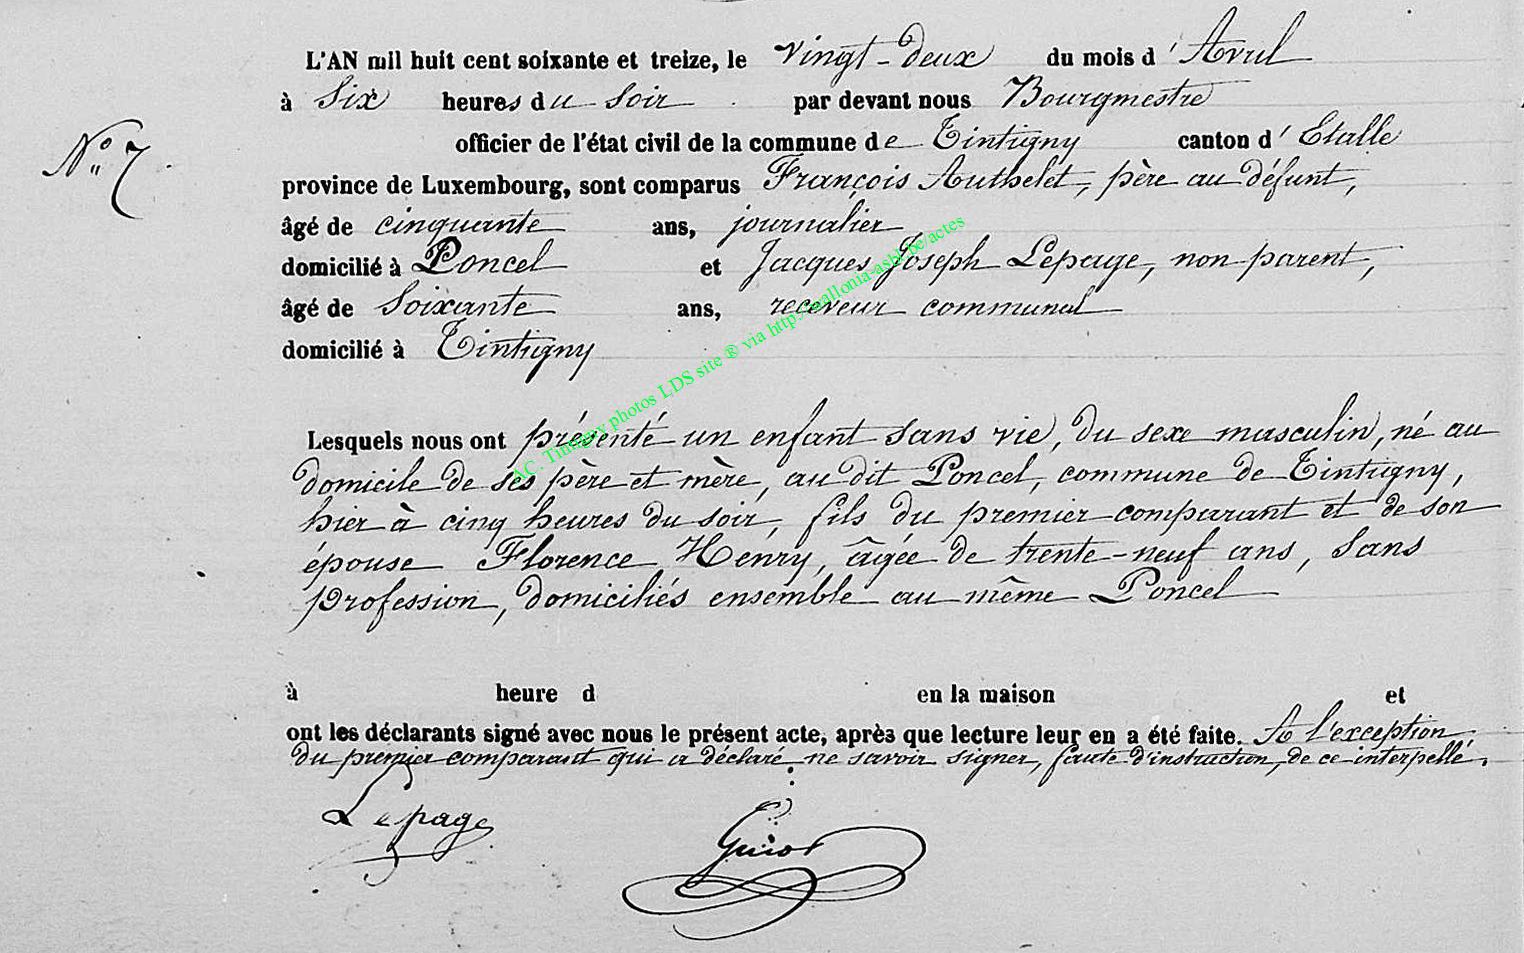 L'AN mil huit cent soixante et treize, le vingt-deux du mois d'Avril
à six heures du soir par devant nous Bourgmestre
officier de l'état civil de la commune de Tintigny canton d'Etalle
N° 7
province de Luxembourg, sont comparus François Authelet, père au défunt,
âgé de cinquante ans, journalier
domicilié à Poncel et Jacques Joseph Lepage, non parent,
âgé de soixante ans, receveur communal
domicilié à Tintigny
AC. Tintigny photos LDS site ® via http://wallonia-asbl.be/actes
Lesquels nous ont présenté un enfant sans vie, du sexe masculin, né au
domicile de ses père et mère, au dit Poncel, commune de Tintigny,
hier à cinq heures du soir, fils du premier comparant et de son
épouse Florence Henry, âgée de trente-neuf ans, sans
profession, domiciliés ensemble au même Poncel
à heure d en la maison et
ont les déclarants signé avec nous le présent acte, après que lecture leur en a été faite. A l'exception
du premier comparant qui a déclaré ne savoir signer, faute d'instruction, de ce interpellé.
Lepage